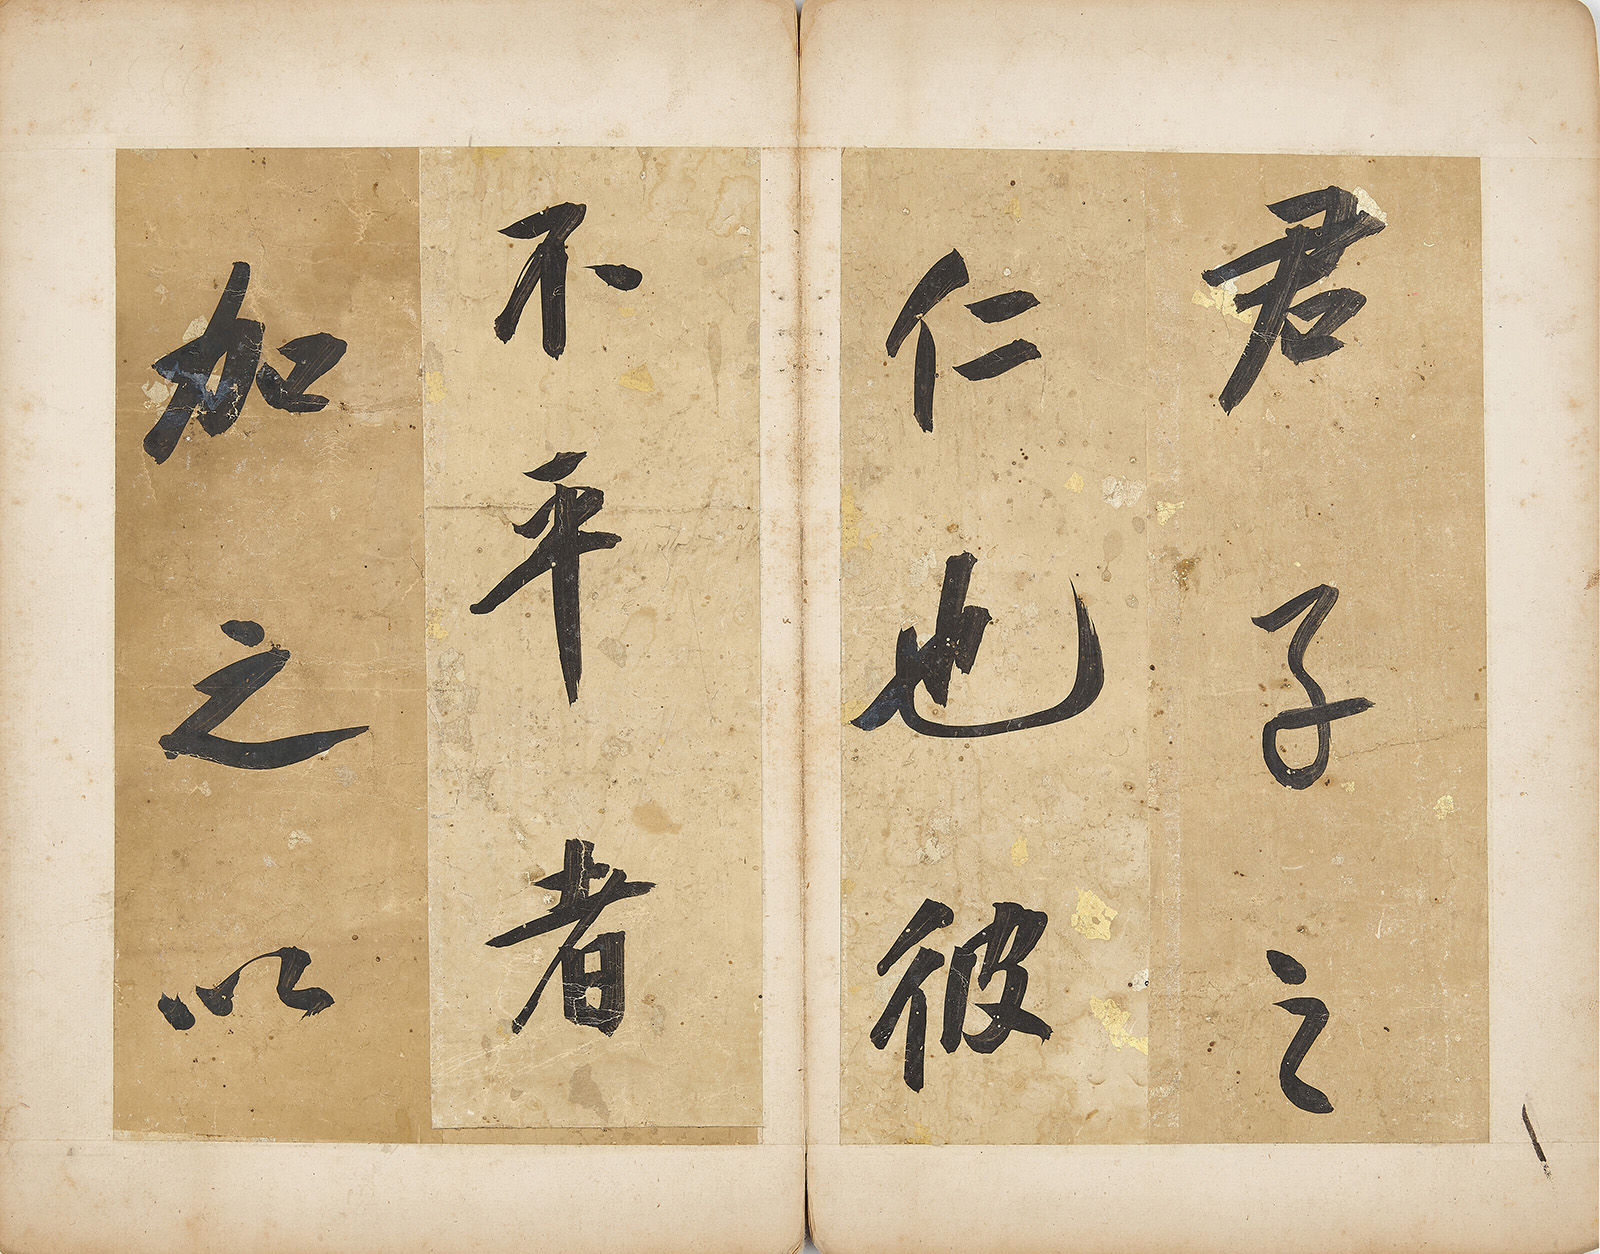 君子之
仁也彼
不平者
加之以